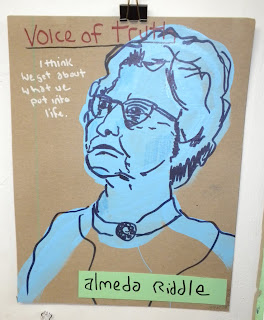 Voice of Truth
I think
we get about
what we
put into
life.
almeda Riddle